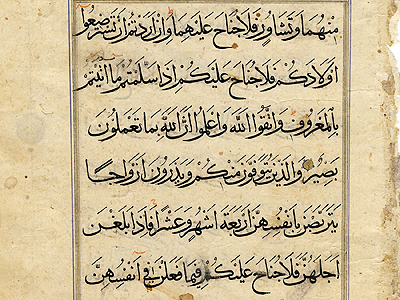 مِنْهُمَا وَتَشَاوُرٍ فَلَا جُنَاحَ عَلَيْهِمَا وَإِنْ أَرَدْتُمْ أَنْ تَسْتَرْضِعُوا
أَوْلَادَكُمْ فَلَا جُنَاحَ عَلَيْكُمْ إِذَا سَلَّمْتُمْ مَا آتَيْتُمْ
بِالْمَعْرُوفِ وَاتَّقُوا اللَّهَ وَاعْلَمُوا أَنَّ اللَّهَ بِمَا تَعْمَلُونَ
بَصِيرٌ وَالَّذِينَ يُتَوَفَّوْنَ مِنْكُمْ وَيَذَرُونَ أَزْوَاجًا
يَتَرَبَّصْنَ بِأَنْفُسِهِنَّ أَرْبَعَةَ أَشْهُرٍ وَعَشْرًا فَإِذَا بَلَغْنَ
أَجَلَهُنَّ فَلَا جُنَاحَ عَلَيْكُمْ فِيمَا فَعَلْنَ فِي أَنْفُسِهِنَّ